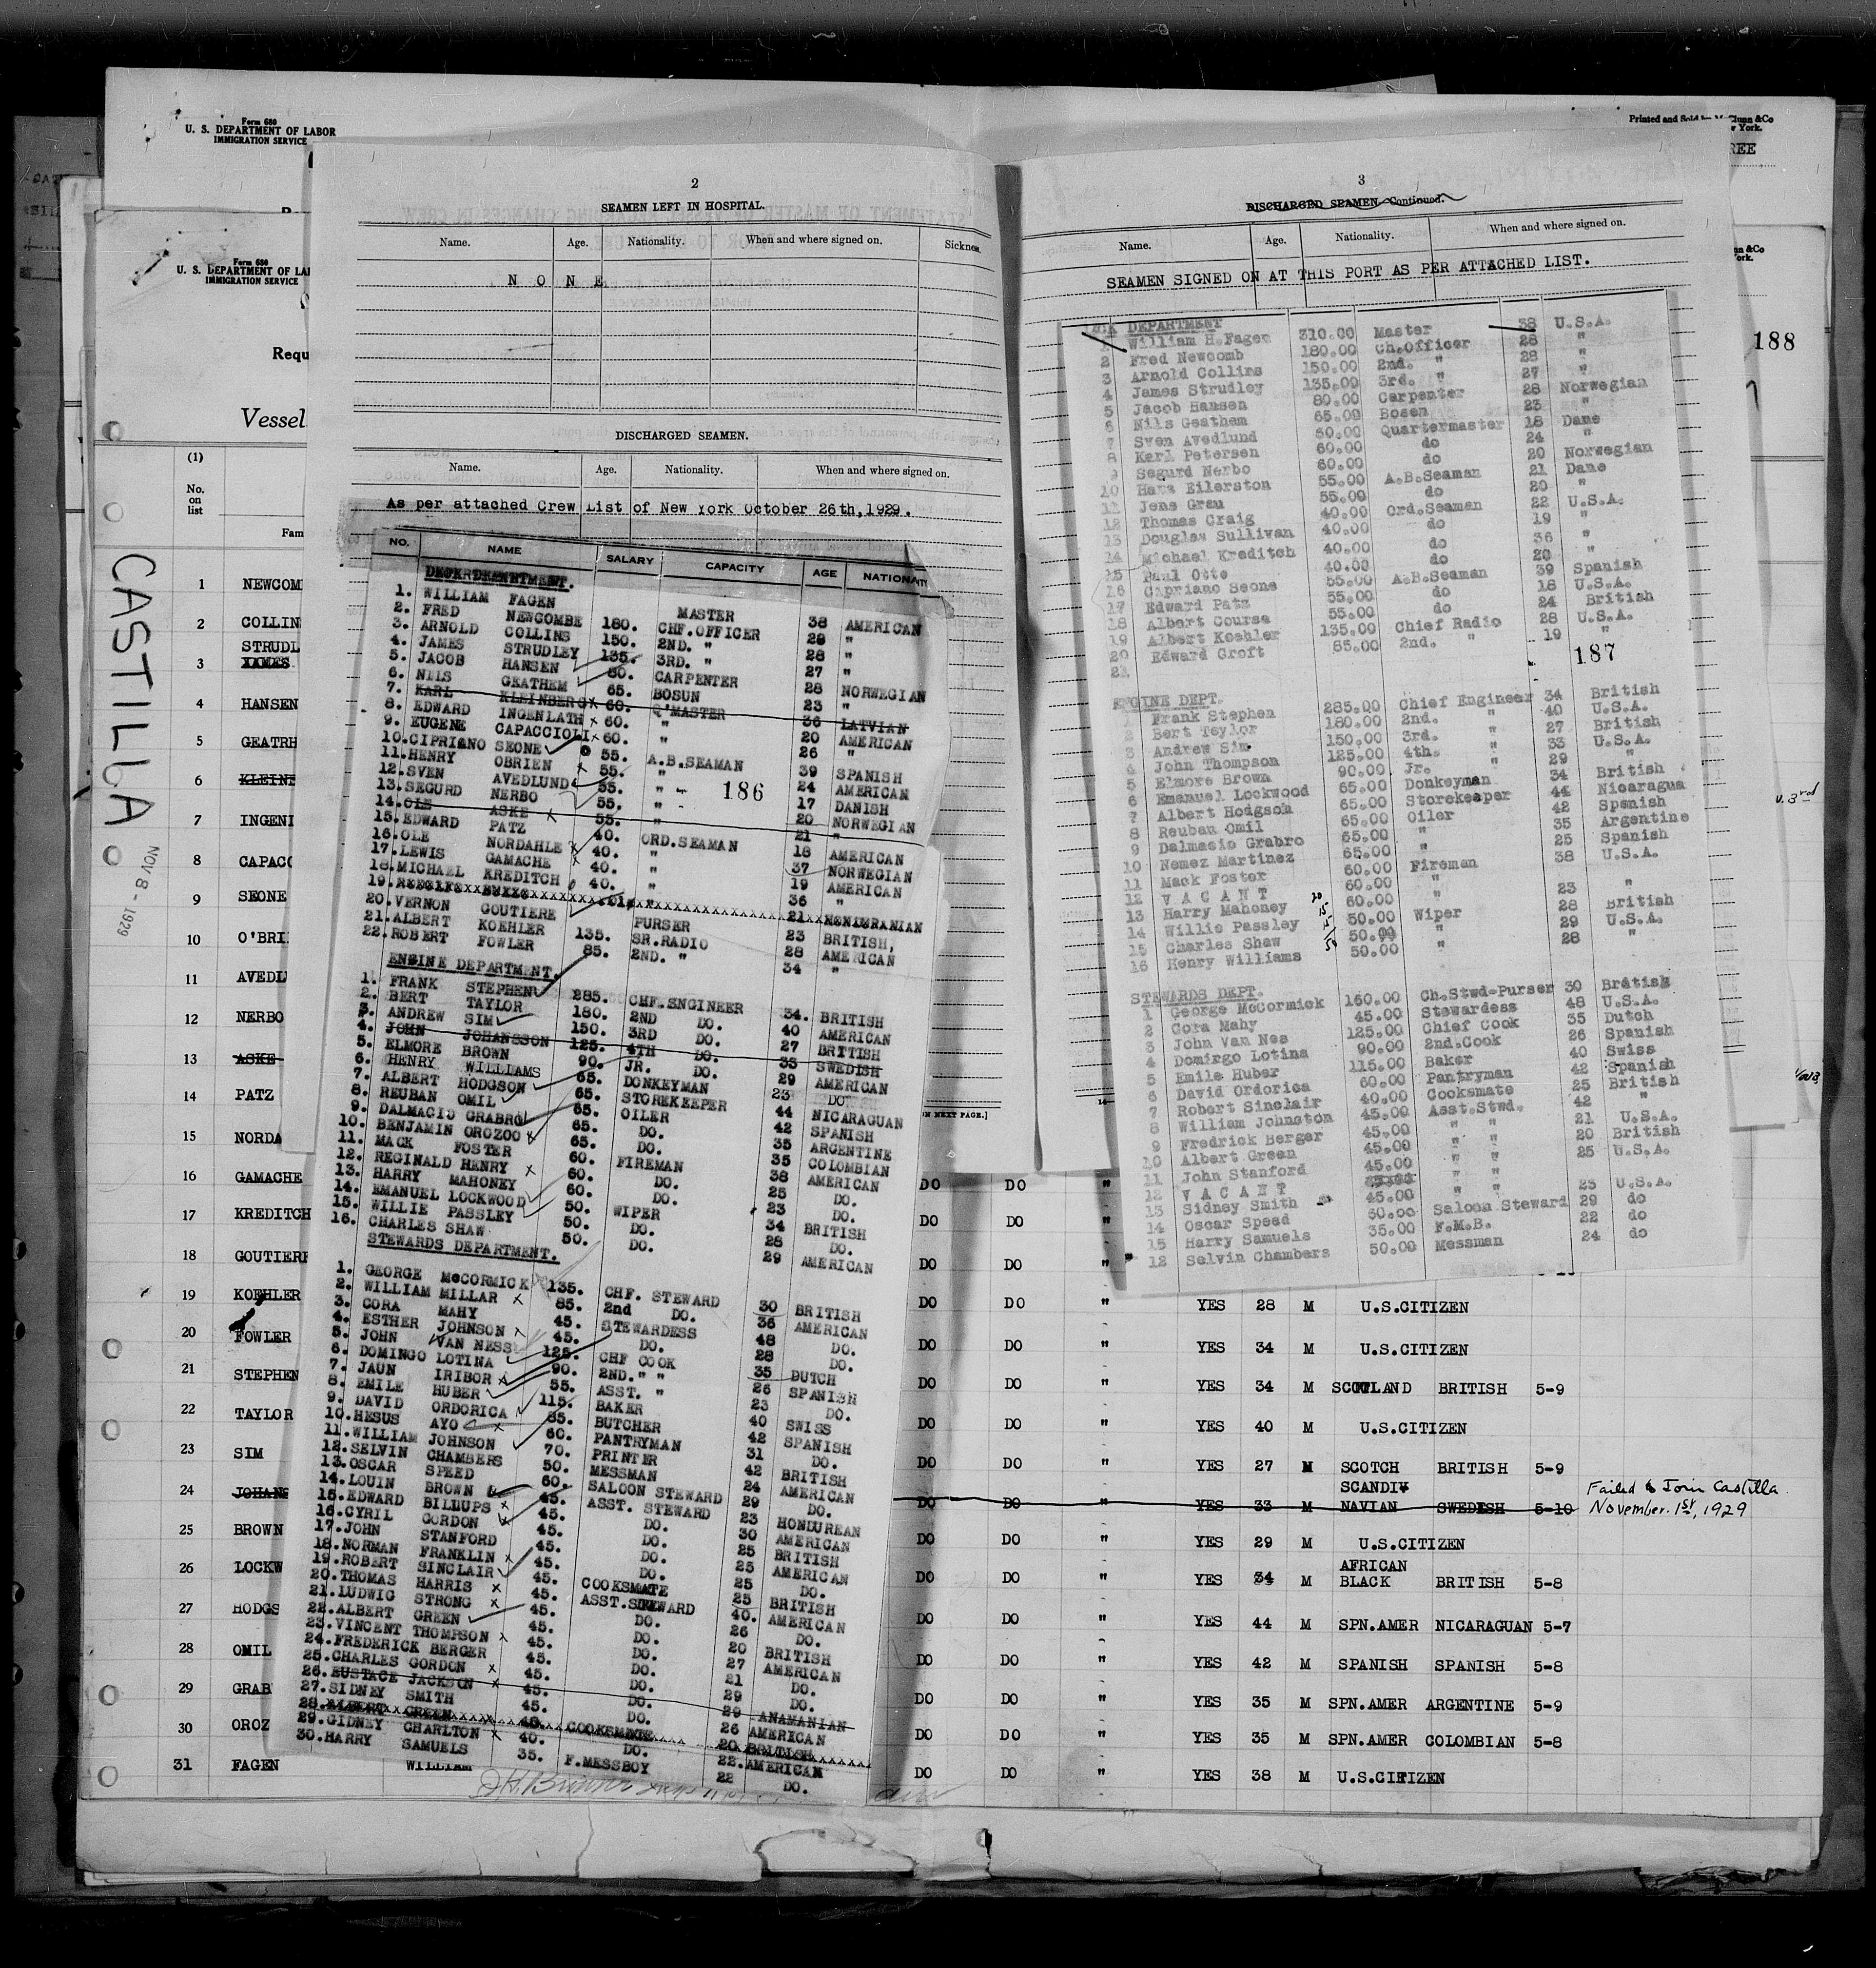 Form 680
U. S. DEPARTMENT OF LABOR
IMMIGRATION SERVICE
Printed and Sold by
Clunn &Co
York.
REE
Form 680
U. S. DEPARTMENT OF LA
IMMIGRATION SERVICE
Requ
Vessel
188
(1)
No.
on
list
Fam
CASTILLA
NOV 8 - 1929
1 NEWCOM
2 COLLIN
STRUDL
3 JAMES
4 HANSEN
5 GEATRH
6 KLEINB
7 INGENI
8 CAPACC
9 SEONE
10 O'BRI
11 AVEDL
12 NERBO
13 ASKE
14 PATZ
15 NORDA
16 GAMACHE
17 KREDITCH
18 GOUTIERR
19 KOEHLER
20 FOWLER
21 STEPHEN
22 TAYLOR
23 SIM
24 JOHANS
25 BROWN
26 LOCKW
27 HODGS
28 OMIL
29 GRAB
30 OROZ
31 FAGEN WILLIAM
2
SEAMEN LEFT IN HOSPITAL.
Name. Age. Nationality. When and where signed on. Sickness.
N O N E
DISCHARGED SEAMEN.
Name. Age. Nationality. When and where signed on.
As per attached Crew List of New York October 26th,1929.
NO. NAME SALARY CAPACITY AGE NATIONA
DECK DEPARTMENT.
1. WILLIAM FAGEN MASTER 38 AMERICAN
2. FRED NEWCOMBE 180. CHF.OFFICER 29 "
3. ARNOLD COLLINS 150. 2ND. " 28 "
4. JAMES STRUDLEY 135. 3RD. " 27 "
5. JACOB HANSEN 80. CARPENTER 28 NORWEGIAN
6. NILS GEATHEM 65. BOSUN 23 "
7. KARL KLEINBERG x 60. Q'MASTER 36 LATVIAN
8. EDWARD INGENLATH x 60. " 20 AMERICAN
9. EUGENE CAPACCIOLI x 60. " 26 "
10. CIPRIANO SEONE 55. A.B.SEAMAN 39 SPANISH
11. HENRY OBRIEN x 55. " 24 AMERICAN
12. SVEN AVEDLUND 55. " 17 DANISH
13. SEGURD NERBO 55. " 20 NORWEGIAN
14. OLE ASKE x 55. " 21 "
15. EDWARD PATZ 40. ORD.SEAMAN 18 AMERICAN
16. OLE NORDAHLE x 40. " 37 NORWEGIAN
17. LEWIS GAMACHE 40. " 19 AMERICAN
18. MICHAEL KREDITCH 40. " 36 "
19. 21 HONDURANIAN
20. VERNON GOUTIERE PURSER 23 BRITISH,
21. ALBERT KOEHLER 135. SR.RADIO 28 AMERICAN
22. ROBERT FOWLER 85. 2ND. " 34 "
186
ENGINE DEPARTMENT.
1. FRANK STEPHEN 285. CHF.ENGINEER 34. BRITISH
2. BERT TAYLOR 180. 2ND DO. 40 AMERICAN
3. ANDREW SIM 150. 3RD DO. 27 BRITISH
4. JOHN JOHANSSON 125. 4TH DO. 33 SWEDISH
5. ELMORE BROWN 90. JR. DO. 29 AMERICAN
6. HENRY WILLIAMS 65. DONKEYMAN 23 DO
7. ALBERT HODGSON 65. STOREKEEPER 44 NICARAGUAN
8. REUBAN OMIL 65. OILER 42 SPANISH
9. DALMACIO GRABRO 65. DO. 35 ARGENTINE
10. BENJAMIN OROZOO x 65. DO. 35 COLOMBIAN
11. MACK FOSTER 60. FIREMAN 38 AMERICAN
12. REGINALD HENRY x 60. DO. 25 DO.
13. HARRY MAHONEY 60. DO. 23 DO.
14. EMANUEL LOCKWOOD 50. WIPER 34 BRITISH
15. WILLIE PASSLEY 50. DO. 28 DO.
16. CHARLES SHAW 50. DO. 29 AMERICAN
STEWARDS DEPARTMENT.
1. GEORGE McCORMICK 135. CHF. STEWARD 30 BRITISH
2. WILLIAM MILLAR x 85. 2nd DO. 36 AMERICAN
3. CORA MAHY 45. STEWARDESS 48 DO.
4. ESTHER JOHNSON x 45. DO. 28 DO.
5. JOHN VAN NESS 125. CHF COOK 35 DUTCH
6. DOMINGO LOTINA 90. 2ND. " " 26 SPANISH
7. JAUN IRIBOR x 55. ASST. " 23 DO.
8. EMILE HUBER 115. BAKER 40 SWISS
9. DAVID ORDORICA 85. BUTCHER 42 SPANISH
10. HESUS AYO x 60. PANTRYMAN 31 DO.
11. WILLIAM JOHNSON 70. PRINTER 42 BRITISH
12. SELVIN CHAMBERS 50. MESSMAN 24 AMERICAN
13. OSCAR SPEED 60. SALOON STEWARD 29 DO.
14. LOUIN BROWN 45. ASST. STEWARD 23 HONDUREAN
15. EDWARD BILLUPS x 45. DO. 30 AMERICAN
16. CYRIL GORDON x 45. DO. 25 BRITISH
17. JOHN STANFORD 45. DO. 25 AMERICAN
18. NORMAN FRANKLIN x 45. DO. 25 DO.
19. ROBERT SINCLAIR 45. COOKSMATE 25 BRITISH
20. THOMAS HARRIS x 45. ASST.STEWARD 40. AMERICAN
21. LUDWIG STRONG x 45. DO. 26 DO.
22. ALBERT GREEN 45. DO. 20 BRITISH
23. VINCENT THOMPSON x 45. DO. 27 AMERICAN
24. FREDERICK BERGER 45. DO. 21 DO.
25. CHARLES GORDON x 45. DO. 29 DO.
26. EUSTACE JACKSON x 45. DO. 29 ANAMANIAN
27. SIDNEY SMITH 45. DO. 26 AMERICAN
28. ALBERT GREEN 40. COOKSMATE 20 BRITISH
29. GIDNEY CHARLTON x 40. DO. 22. AMERICAN
30. HARRY SAMUELS 35. F.MESSBOY 22 DO.
3
DISCHARGED SEAMEN—Continued.
Name. Age. Nationality. When and where signed on.
SEAMEN SIGNED ON AT THIS PORT AS PER ATTACHED LIST.
DEPARTMENT
William H.Fagen 310.00 Master 38 U.S.A.
2 Fred Newcomb 180.00 Ch.Officer 28 "
3 Arnold Collins 150.00 2nd. " 28 "
4 James Strudley 135.00 3rd. " 27 "
5 Jacob Hansen 80.00 Carpenter 28 Norwegian
6 Nils Geathem 65.00 Bosen 23 "
7 Sven Avedlund 60.00 Quartermaster 18 Dane
8 Karl Petersen 60.00 do 24 "
9 Segurd Nerbo 60.00 do 20 Norwegian
10 Hans Eilerston 55.00 A.B.Seaman 21 Dane
11 Jens Grau 55.00 do 20 "
12 Thomas Craig 40.00 Ord.Seaman 22 U.S.A.
13 Douglas Sullivan 40.00 do 19 "
14 Michael Kreditch 40.00 do 36 "
15 Paul Otto 40.00 do 20 "
16 Cipriano Seone 55.00 A.B.Seaman 39 Spanish
17 Edward Patz 55.00 do 18 U.S.A.
18 Albert Course 55.00 do 24 British
19 Albert Koehler 135.00 Chief Radio 28 U.S.A.
20 Edward Groft 85.00 2nd. " 19 "
21
187
ENGINE DEPT.
1 Frank Stephen 285.00 Chief Engineer 34 British
2 Bert Taylor 180.00 2nd. " 40 U.S.A.
3 Andrew Sim 150.00 3rd. " 27 British
4 John Thompson 125.00 4th. " 33 U.S.A.
5 Elmore Brown 90.00 Jr. " 29 "
6 Emanuel Lockwood 65.00 Donkeyman 34 British
7 Albert Hodgson 65.00 Storekeeper 44 Nicaragua
8 Reuban Omil 65.00 Oiler 42 Spanish
9 Dalmacio Grabro 65.00 " 35 Argentine
10 Nemez Martinez 65.00 " 25 Spanish
11 Mack Foster 60.00 Fireman 38 U.S.A.
12 V A C A N T 60.00 "
13 Harry Mahoney 60.00 " 23 "
14 Willie Passley 50.00 Wiper 28 British
15 Charles Shaw 50.00 " 29 U.S.A.
16 Henry Williams 50.00 " 28 "
STEWARDS DEPT.
1 George McCormick 160.00 Ch.Stwd-Purser 30 British
2 Cora Mahy 45.00 Stewardess 48 U.S.A.
3 John Van Nes 125.00 Chief Cook 35 Dutch
4 Domingo Lotina 90.00 2nd.Cook 26 Spanish
5 Emile Huber 115.00 Baker 40 Swiss
6 David Ordorica 60.00 Pantryman 42 Spanish
7 Robert Sinclair 40.00 Cooksmate 25 British
8 William Johnston 45.00 Asst.Stwd. 42 "
9 Fredrick Berger 45.00 " " 21 U.S.A.
10 Albert Green 45.00 " " 20 British
11 John Stanford 45.00 " " 25 U.S.A.
12 V A C A N T " "
13 Sidney Smith 45.00 " " 25 U.S.A.
14 Oscar Speed 60.00 Saloon Steward 29 do
15 Harry Samuels 35.00 F.M.B. 22 do
12 Selvin Chambers 50.00 Messman 24 do
N NEXT PAGE.]
DO DO "
DO DO
DO DO "
DO DO " YES 28 M U.S.CITIZEN
DO DO " YES 34 M U.S.CITIZEN
DO DO " YES 34 M SCOTLAND BRITISH 5-9
DO DO " YES 40 M U.S.CITIZEN
DO DO " YES 27 M SCOTCH BRITISH 5-9
DO DO " YES 33 M SCANDINAVIAN SWEDISH 5-10 Failed to Join Castilla November. 1st, 1929
DO DO " YES 29 M U.S.CITIZEN
DO DO " YES 34 M AFRICAN BLACK BRITISH 5-8
DO DO " YES 44 M SPN.AMER NICARAGUAN 5-7
DO DO " YES 42 M SPANISH SPANISH 5-8
DO DO " YES 35 M SPN.AMER ARGENTINE 5-9
DO DO " YES 35 M SPN.AMER COLOMBIAN 5-8
DO DO " YES 38 M U.S.CITIZEN